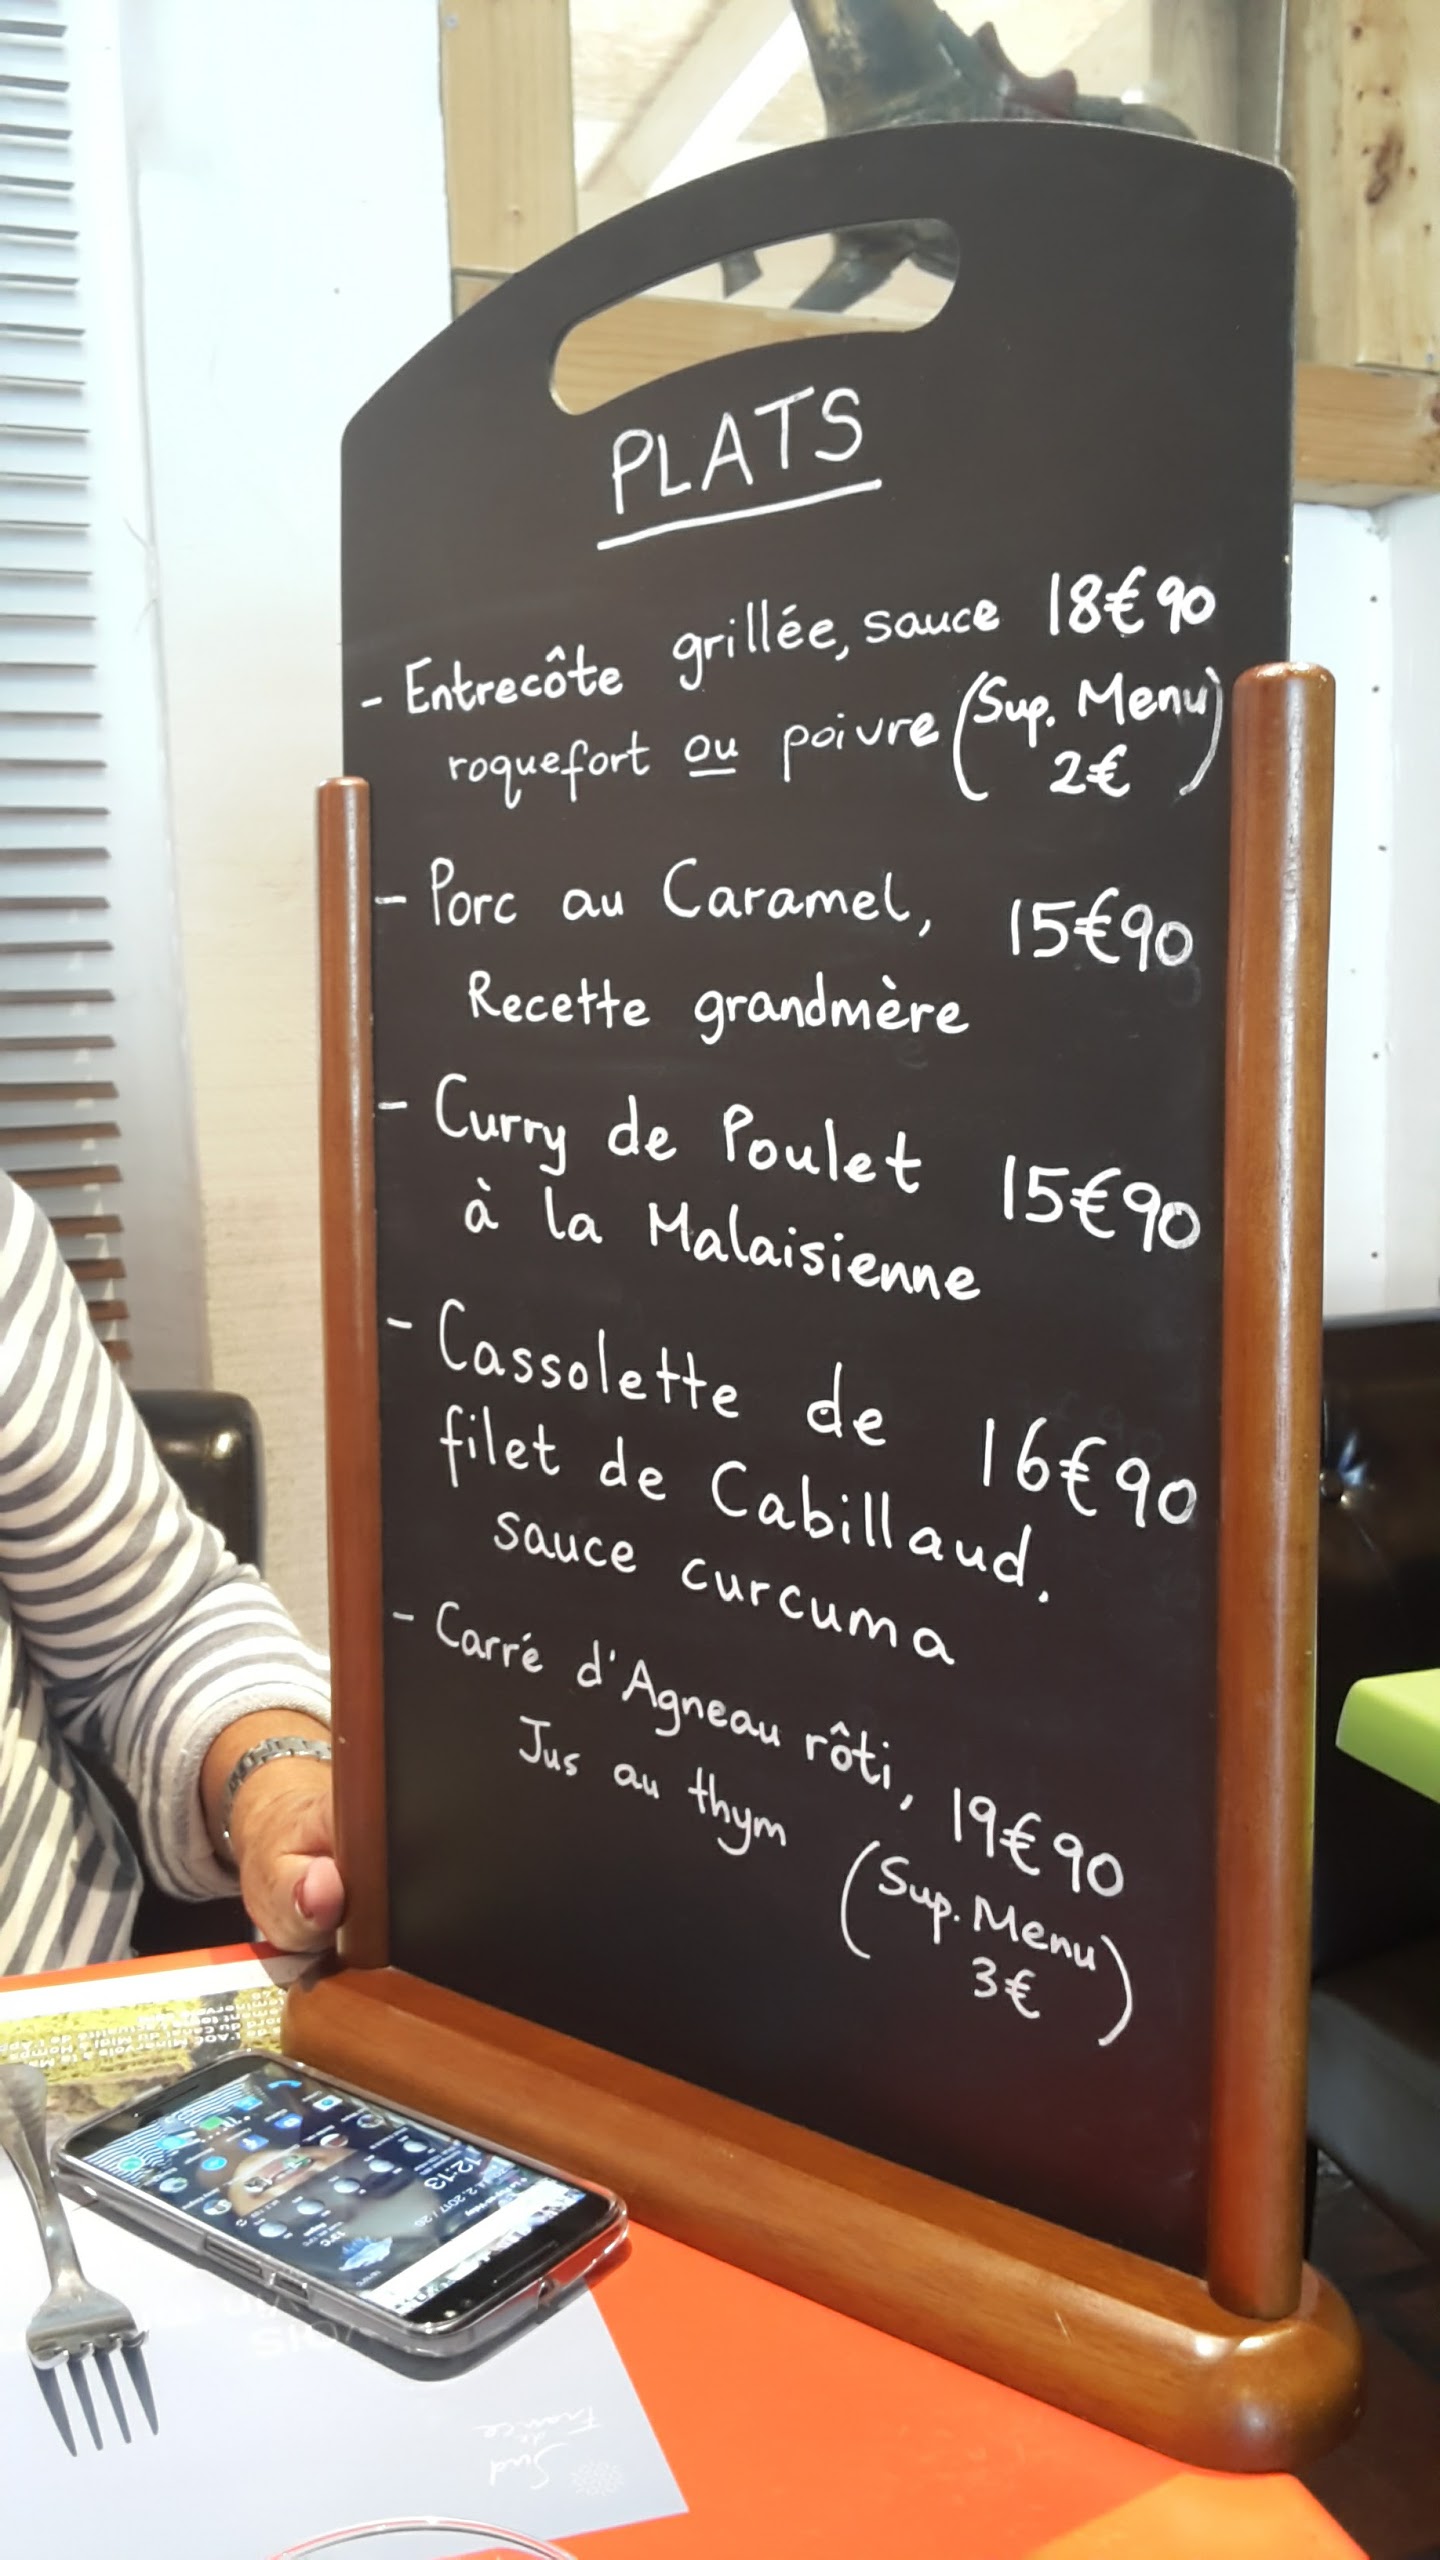 PLATS
- Entrecôte grillée, sauce 18€90
roquefort ou poivre (Sup. Menu)
2€
- Porc au Caramel, 15€90
Recette grandmère
- Curry de Poulet 15€90
à la Malaisienne
- Cassolette de 16€90
filet de Cabillaud.
sauce curcuma
- Carré d'Agneau rôti, 19€90
Jus au thym (Sup. Menu)
3€
12:13
13°C
Sud
de
France